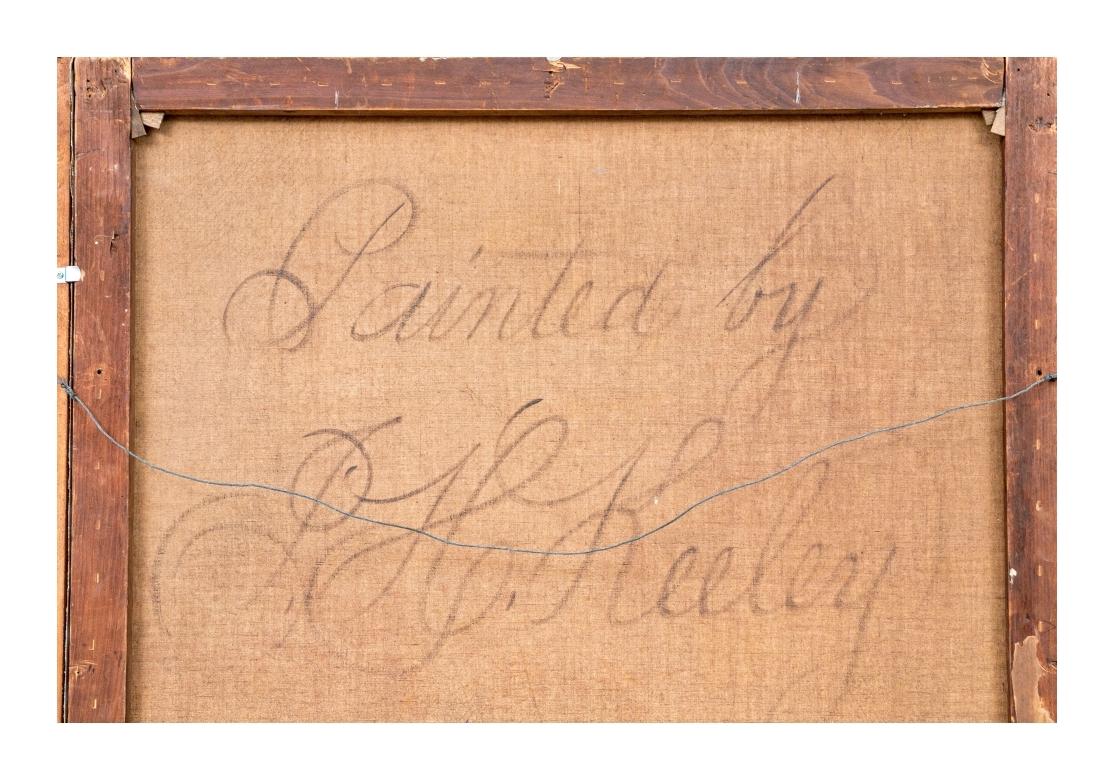 Painted by
F. H. Keeley